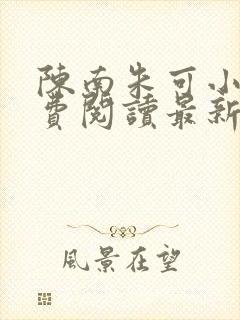 陳南朱可小
費閱讀最新
風景在望